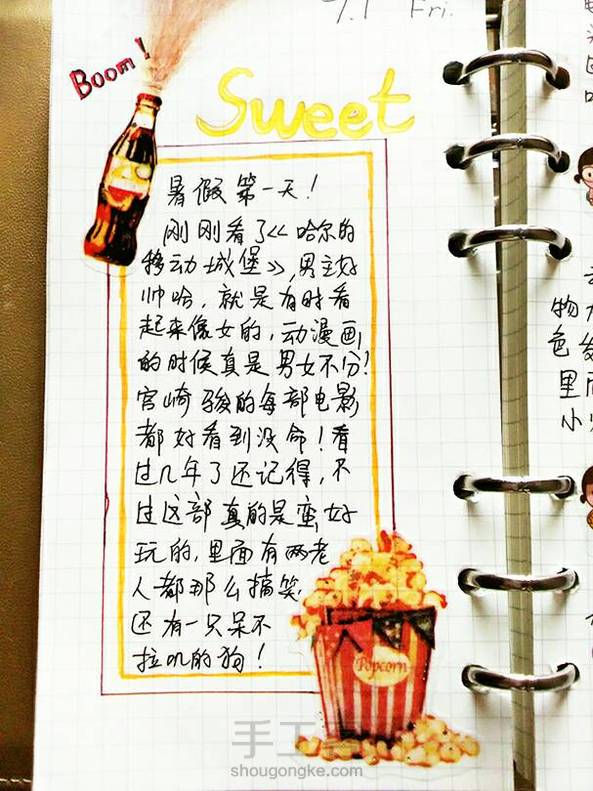 7.1 Fri.
Boom!
Sweet
暑假第一天!
刚刚看了《哈尔的
移动城堡》,男主好
帅哈,就是有时看
起来像女的,动漫画
的时候真是男女不分?
宫崎骏的每部电影
都好看到没命!看
过几年了还记得,不
过这部真的是蛮好
玩的,里面有两老
人都那么搞笑
还有一只呆不
拉叽的狗!
Popcorn
物
色
里面
小
手工客
shougongke.com